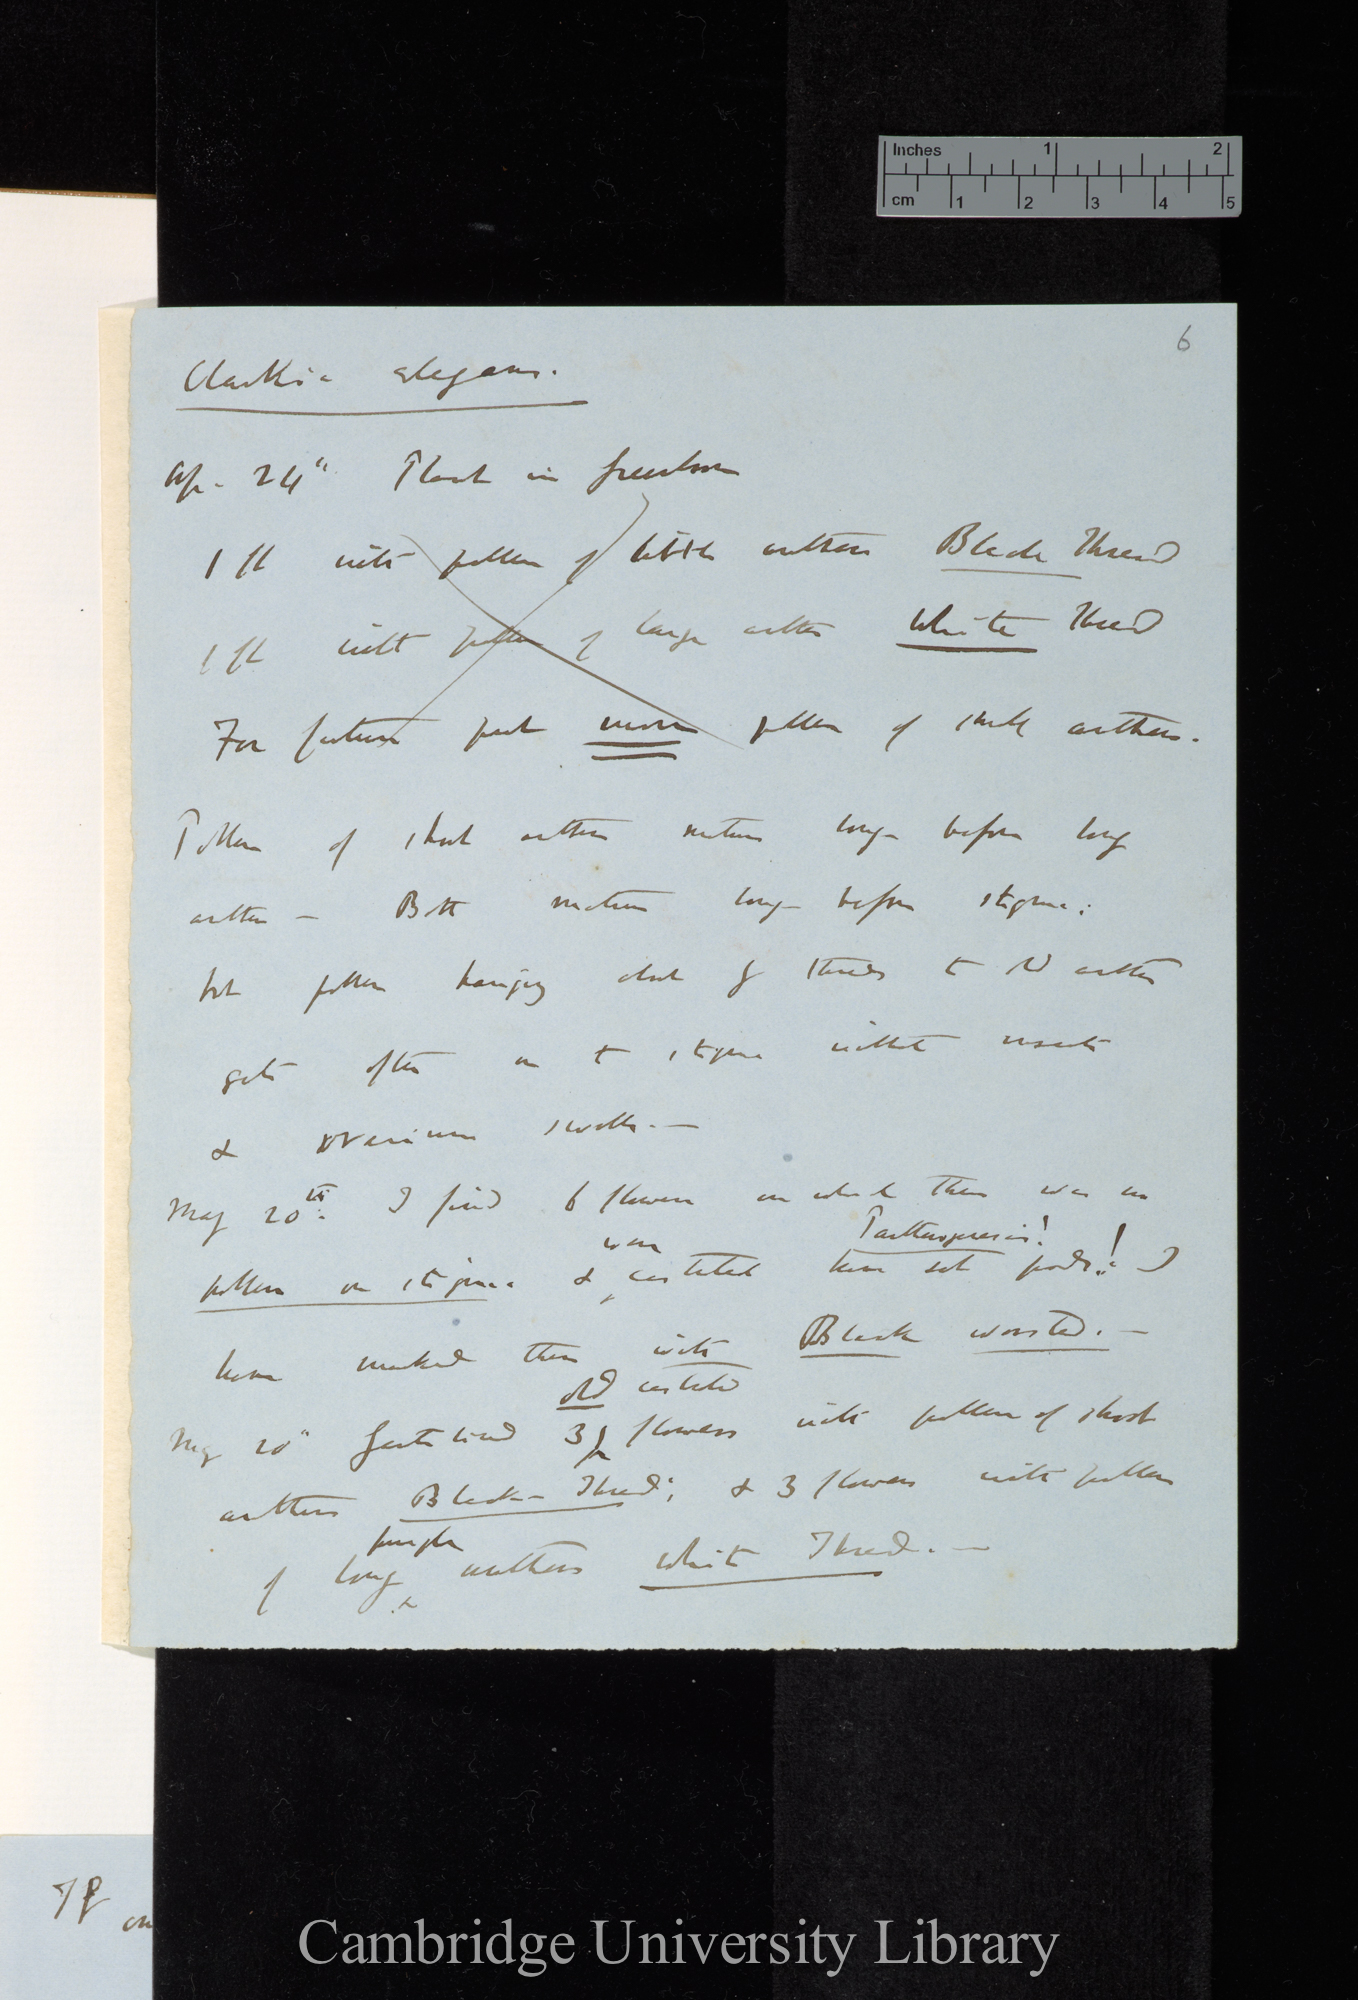 Inches 1 2
cm 1 2 3 4 5
6
Clarkia elegans.
Ap. 24th Plant in greenhouse
1 fl with pollen of little anthers Black Thread
1 fl with pollen of large anther White Thread
For future put more pollen of short anthers.
Pollen of short anthers mature long before long
anthers — Both mature long before stigma;
but pollen hanging about by threads to old anthers
gets often on to stigma without insects
& ovarium swells. —
May 20th. I find 6 flowers on which there was no
were Parthenogenesis!
pollen on stigma & castrated have set pods!! I
have marked them with Black worsted. —
old castrated
May 20th fertilised 3 flowers with pollen of short
anthers Black Thread; & 3 flowers with pollen
purple
of long anthers White Thread. —
Cambridge University Library